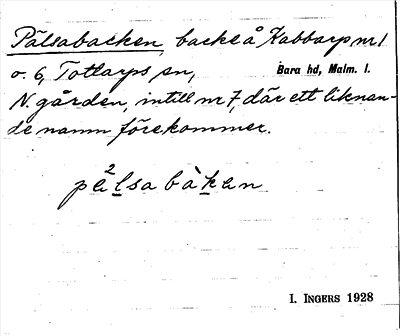 Pålsabacken, backe å Kabbarp nr 1
o. 6, Tottarps sn, Bara hd, Malm. l.
N. gården, intill nr 7, där ett liknan-
de namn förekommer.
på²lsa bàken
I. INGERS 1928